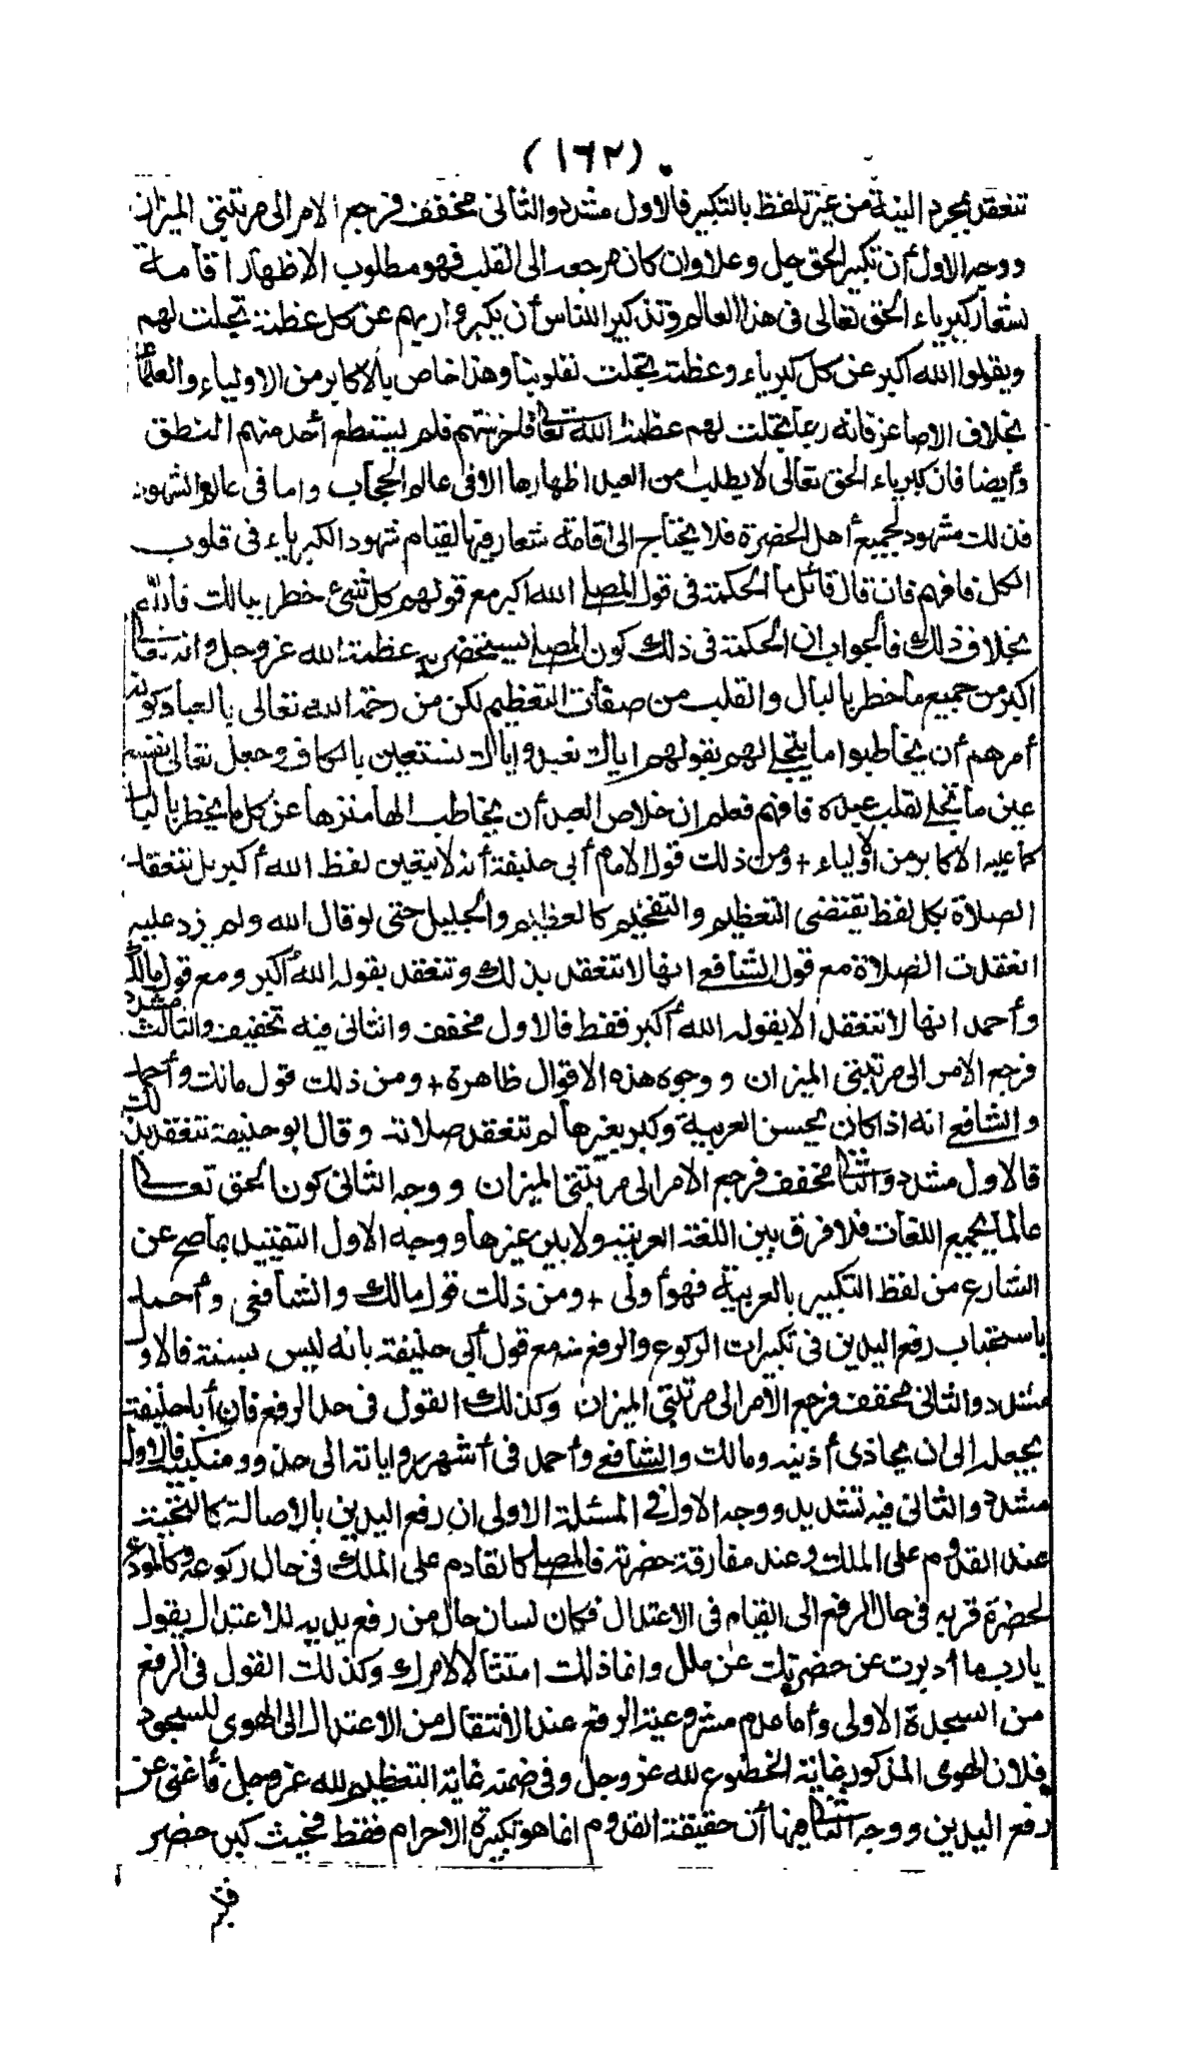 (١٦٢)
تنعقد بمجرد النية من غير تلفظ بالتكبير فالاول مشدد والثانى مخفف فرجع الامر الى مرتبتى الميزان
ووجه الاول أن تكبير الحق جل وعلا وان كان مرجعه الى القلب فهو مطلوب الاظهار اقامة
لشعار كبرياء الحق تعالى فى هذا العالم وتذكير الناس أن يكبروا ربهم عن كل عظمة تجلت لهم
ويقولوا الله أكبر عن كل كبرياء وعظمة تجلت لقلوبنا وهذا خاص بالاكابر من الاولياء والعلماء
بخلاف الاصاغر فانه ربما تجلت لهم عظمة الله تعالى فاخرستهم فلم يستطع أحد منهم النطق
وأيضا فان كبرياء الحق تعالى لا يطلب من العبد اظهارها الا فى عالم الحجاب واما فى عالم الشهود
فذلك مشهود لجميع أهل الحضرة فلا يحتاج الى اقامة شعار فيها لقيام شهود الكبرياء فى قلوب
الكل فافهم فان قال قائل ما الحكمة فى قول المصلى الله اكبر مع قولهم كل شئ خطر ببالك فالله
بخلاف ذلك فالجواب ان الحكمة فى ذلك كون المصلى يستحضر به عظمة الله عز وجل وانه تعالى
اكبر من جميع ما خطر بالبال والقلب من صفات التعظيم لكن من رحمة الله تعالى بالعباد كونه
أمرهم أن يخاطبوا ما يتجلى لهم بقولهم اياك نعبد واياك نستعين بالكاف وجعل تعالى نفسه
عين ما تجلى لقلب عبده فافهم فعلم ان خلاص العبد أن يخاطب الها منزها عن كل ما يخطر بالبال
كما عليه الاكابر من الاولياء + ومن ذلك قول الامام أبى حنيفة أنه لا يتعين لفظ الله أكبر بل تنعقد
الصلاة بكل لفظ يقتضى التعظيم والتفخيم كالعظيم والجليل حتى لو قال الله ولم يزد عليه
انعقدت الصلاة مع قول الشافعى انها لا تنعقد بذلك وتنعقد بقوله الله أكبر ومع قول مالك
وأحمد انها لا تنعقد الا بقوله الله أكبر فقط فالاول مخفف والثانى فيه تخفيف والثالث مشدد
فرجع الامر الى مرتبتى الميزان ووجوه هذه الاقوال ظاهرة + ومن ذلك قول مالك وأحمد
والشافعى انه اذا كان يحسن العربية وكبر بغيرها لم تنعقد صلاته وقال ابو حنيفة تنعقد بذلك
فالاول مشدد والثانى مخفف فرجع الامر الى مرتبتى الميزان ووجه الثانى كون الحق تعالى
عالما بجميع اللغات فلا فرق بين اللغة العربية ولا بين غيرها ووجه الاول التقييد بما صح عن
الشارع من لفظ التكبير بالعربية فهو أولى + ومن ذلك قول مالك والشافعى وأحمد
باستحباب رفع اليدين فى تكبيرات الركوع والرفع منه مع قول أبى حنيفة بانه ليس بسنة فالاول
مشدد والثانى مخفف فرجع الامر الى مرتبتى الميزان وكذلك القول فى حد الرفع فان أبا حنيفة
يجعله الى ان يحاذى أذنيه ومالك والشافعى وأحمد فى أشهر رواياته الى حذو منكبيه فالاول
مشدد والثانى فيه تشديد ووجه الاول فى المسئلة الاولى ان رفع اليدين بالاصالة كالتحية
عند القدوم على الملك وعند مفارقة حضرته فالمصلى كالقادم على الملك فى حال ركوعه وكالمودع
لحضرة قربه فى حال الرفع الى القيام فى الاعتدال فكان لسان حال من رفع يديه للاعتدال يقول
يارب ما أدبرت عن حضرتك عن ملل وانما ذلك امتثالا لامرك وكذلك القول فى الرفع
من السجدة الاولى وأما عدم مشروعية الرفع عند الانتقال من الاعتدال الى الهوى للسجود
فلان الهوى المذكور غاية الخضوع لله عز وجل وفى ضمنه غاية التعظيم لله عز وجل فأغنى عن
رفع اليدين ووجه الثانى فيها أن حقيقة القدوم انما هو تكبيرة الاحرام فقط فحيث كبر حضر